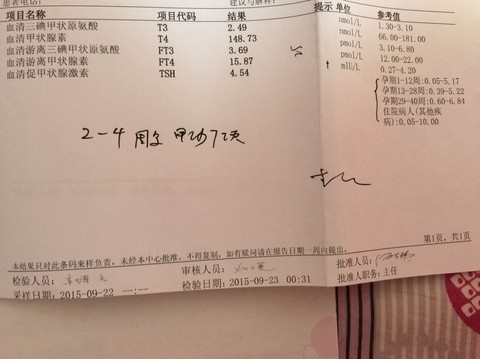 患者电话：
建议与解释：
项目名称 项目代码 结果 提示 单位 参考值
血清三碘甲状原氨酸 T3 2.49 nmol/L 1.30-3.10
血清甲状腺素 T4 148.73 nmol/L 66.00-181.00
血清游离三碘甲状原氨酸 FT3 3.69 pmol/L 3.10-6.80
血清游离甲状腺素 FT4 15.87 pmol/L 12.00-22.00
血清促甲状腺激素 TSH 4.54 ↑ mIU/L 0.27-4.20
孕期1-12周:0.05-5.17
孕期13-28周:0.39-5.22
孕期29-40周:0.60-6.84
住院病人(其他疾
病):0.05-10.00
2-4周复 甲功7项
第1页, 共1页
本结果只对此条码来样负责，未经本中心批准，不得复制，如有疑问请在报告日期一周内提出。
检验人员： 审核人员： 批准人员：
采样日期：2015-09-22 --:-- 检验日期：2015-09-23 00:31 批准人职务：主任